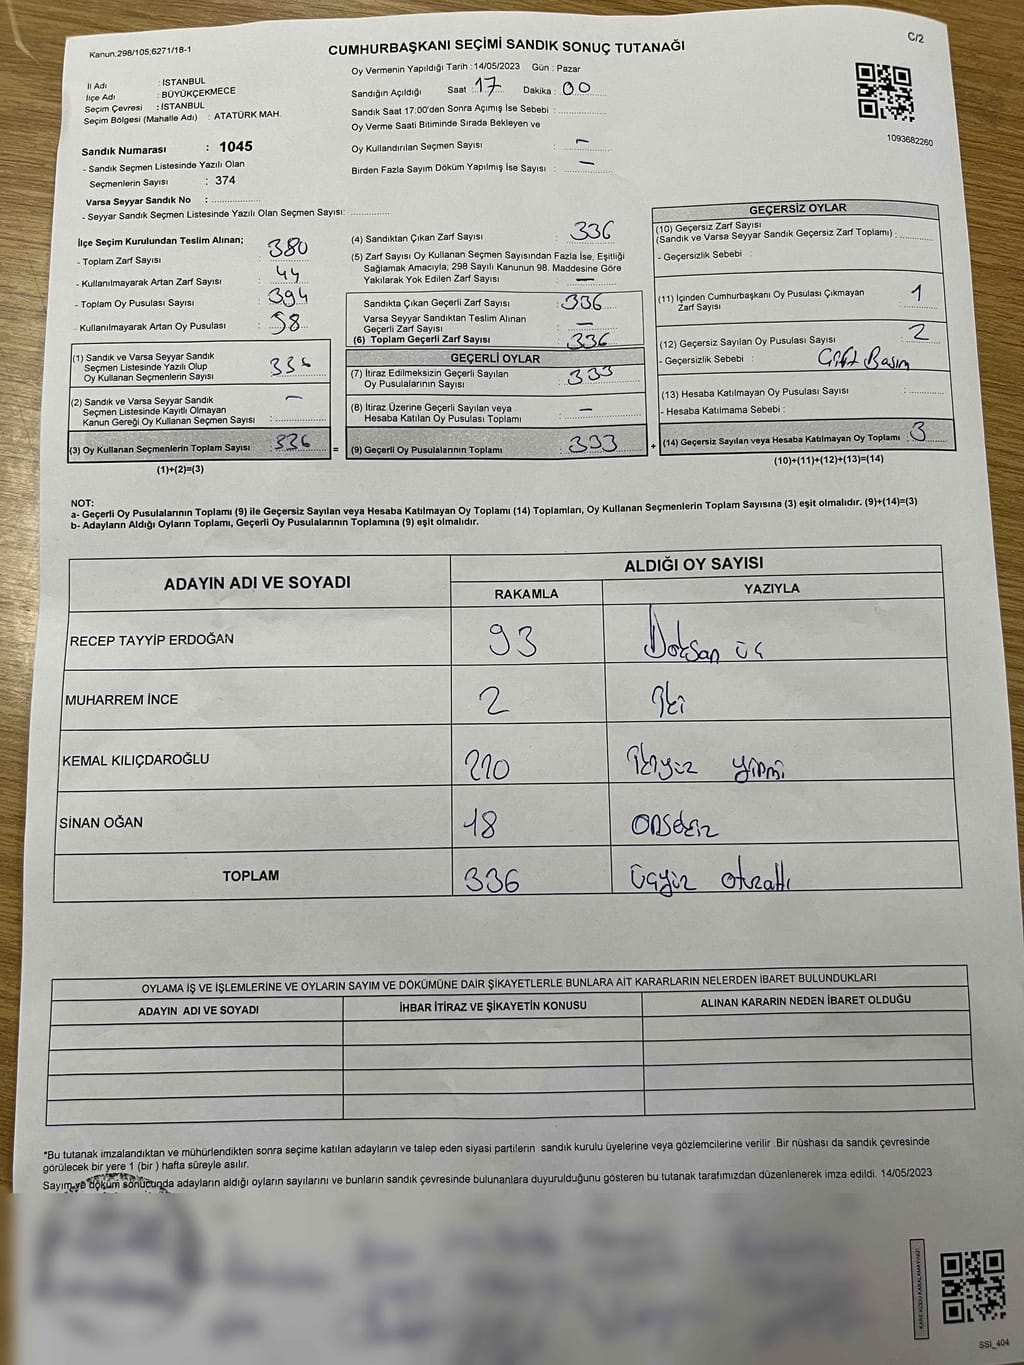 Kanun:298/105;6271/18-1
CUMHURBAŞKANI SEÇİMİ SANDIK SONUÇ TUTANAĞI
C/2
İl Adı : İSTANBUL
İlçe Adı : BÜYÜKÇEKMECE
Seçim Çevresi : İSTANBUL
Seçim Bölgesi (Mahalle Adı) : ATATÜRK MAH.
Sandık Numarası : 1045
- Sandık Seçmen Listesinde Yazılı Olan
Seçmenlerin Sayısı : 374
Varsa Seyyar Sandık No : ..................
- Seyyar Sandık Seçmen Listesinde Yazılı Olan Seçmen Sayısı: ..............
Oy Vermenin Yapıldığı Tarih :14/05/2023 Gün : Pazar
Sandığın Açıldığı Saat : 17 Dakika : 00
Sandık Saat 17:00'den Sonra Açımış İse Sebebi : ..................
Oy Verme Saati Bitiminde Sırada Bekleyen ve
Oy Kullandırılan Seçmen Sayısı : –
Birden Fazla Sayım Döküm Yapılmış İse Sayısı : –
1093682260
İlçe Seçim Kurulundan Teslim Alınan;
- Toplam Zarf Sayısı : 380
- Kullanılmayarak Artan Zarf Sayısı : 44
- Toplam Oy Pusulası Sayısı : 394
- Kullanılmayarak Artan Oy Pusulası : 58
(1) Sandık ve Varsa Seyyar Sandık
Seçmen Listesinde Yazılı Olup
Oy Kullanan Seçmenlerin Sayısı : 336
(2) Sandık ve Varsa Seyyar Sandık
Seçmen Listesinde Kayıtlı Olmayan
Kanun Gereği Oy Kullanan Seçmen Sayısı : –
(3) Oy Kullanan Seçmenlerin Toplam Sayısı : 336
(1)+(2)=(3)
=
(4) Sandıktan Çıkan Zarf Sayısı : 336
(5) Zarf Sayısı Oy Kullanan Seçmen Sayısından Fazla İse, Eşitliği
Sağlamak Amacıyla; 298 Sayılı Kanunun 98. Maddesine Göre
Yakılarak Yok Edilen Zarf Sayısı : –
Sandıkta Çıkan Geçerli Zarf Sayısı : 336
Varsa Seyyar Sandıktan Teslim Alınan
Geçerli Zarf Sayısı : –
(6) Toplam Geçerli Zarf Sayısı : 336
GEÇERLİ OYLAR
(7) İtiraz Edilmeksizin Geçerli Sayılan
Oy Pusulalarının Sayısı : 333
(8) İtiraz Üzerine Geçerli Sayılan veya
Hesaba Katılan Oy Pusulası Toplamı : –
(9) Geçerli Oy Pusulalarının Toplamı : 333
+
GEÇERSİZ OYLAR
(10) Geçersiz Zarf Sayısı
(Sandık ve Varsa Seyyar Sandık Geçersiz Zarf Toplamı) : .........
- Geçersizlik Sebebi :
(11) İçinden Cumhurbaşkanı Oy Pusulası Çıkmayan
Zarf Sayısı : 1
(12) Geçersiz Sayılan Oy Pusulası Sayısı : 2
- Geçersizlik Sebebi : Çift Basım
(13) Hesaba Katılmayan Oy Pusulası Sayısı : ............
- Hesaba Katılmama Sebebi :
(14) Geçersiz Sayılan veya Hesaba Katılmayan Oy Toplamı : 3
(10)+(11)+(12)+(13)=(14)
NOT:
a- Geçerli Oy Pusulalarının Toplamı (9) ile Geçersiz Sayılan veya Hesaba Katılmayan Oy Toplamı (14) Toplamları, Oy Kullanan Seçmenlerin Toplam Sayısına (3) eşit olmalıdır. (9)+(14)=(3)
b- Adayların Aldığı Oyların Toplamı, Geçerli Oy Pusulalarının Toplamına (9) eşit olmalıdır.
ADAYIN ADI VE SOYADI
ALDIĞI OY SAYISI
RAKAMLA YAZIYLA
RECEP TAYYİP ERDOĞAN 93 Doksan üç
MUHARREM İNCE 2 İki
KEMAL KILIÇDAROĞLU 220 İkiyüz yirmi
SİNAN OĞAN 18 onsekiz
TOPLAM 336 üçyüz otuzaltı
OYLAMA İŞ VE İŞLEMLERİNE VE OYLARIN SAYIM VE DÖKÜMÜNE DAİR ŞİKAYETLERLE BUNLARA AİT KARARLARIN NELERDEN İBARET BULUNDUKLARI
ADAYIN ADI VE SOYADI İHBAR İTİRAZ VE ŞİKAYETİN KONUSU ALINAN KARARIN NEDEN İBARET OLDUĞU
*Bu tutanak imzalandıktan ve mühürlendikten sonra seçime katılan adayların ve talep eden siyasi partilerin sandık kurulu üyelerine veya gözlemcilerine verilir .Bir nüshası da sandık çevresinde
görülecek bir yere 1 (bir ) hafta süreyle asılır.
Sayım ve döküm sonucunda adayların aldığı oyların sayılarını ve bunların sandık çevresinde bulunanlara duyurulduğunu gösteren bu tutanak tarafımızdan düzenlenerek imza edildi. 14/05/2023
KARE KODU KARALAMAYINIZ!
SSI_404